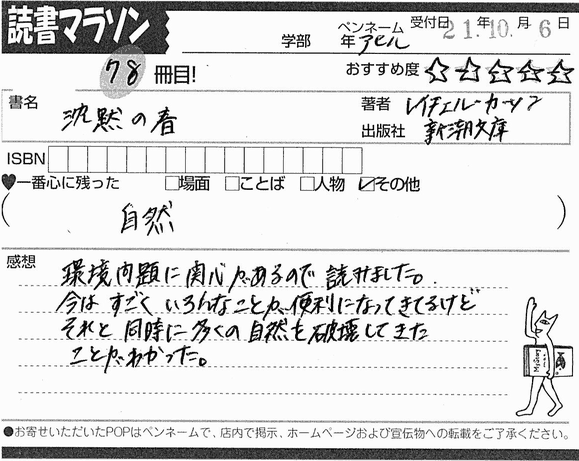 読書マラソン
学部 年 ペンネーム アセル 受付日 21年10月6日
78 冊目! おすすめ度 ☆☆☆☆☆
書名 沈黙の春
著者 レイチェル・カーソン
出版社 新潮文庫
ISBN
♥一番心に残った □場面 □ことば □人物 ☑その他
( 自然 )
感想
環境問題に関心があるので読みました。
今はすごくいろんなことが便利になってきてるけど
それと同時に多くの自然を破壊してきた
ことがわかった。
Mystery
●お寄せいただいたPOPはペンネームで、店内で掲示、ホームページおよび宣伝物への転載をご了承ください。